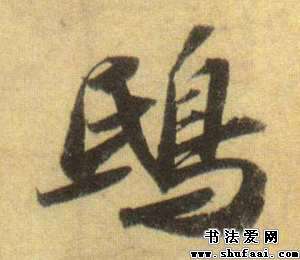 鴟
书法爱网
www.shufaai.com